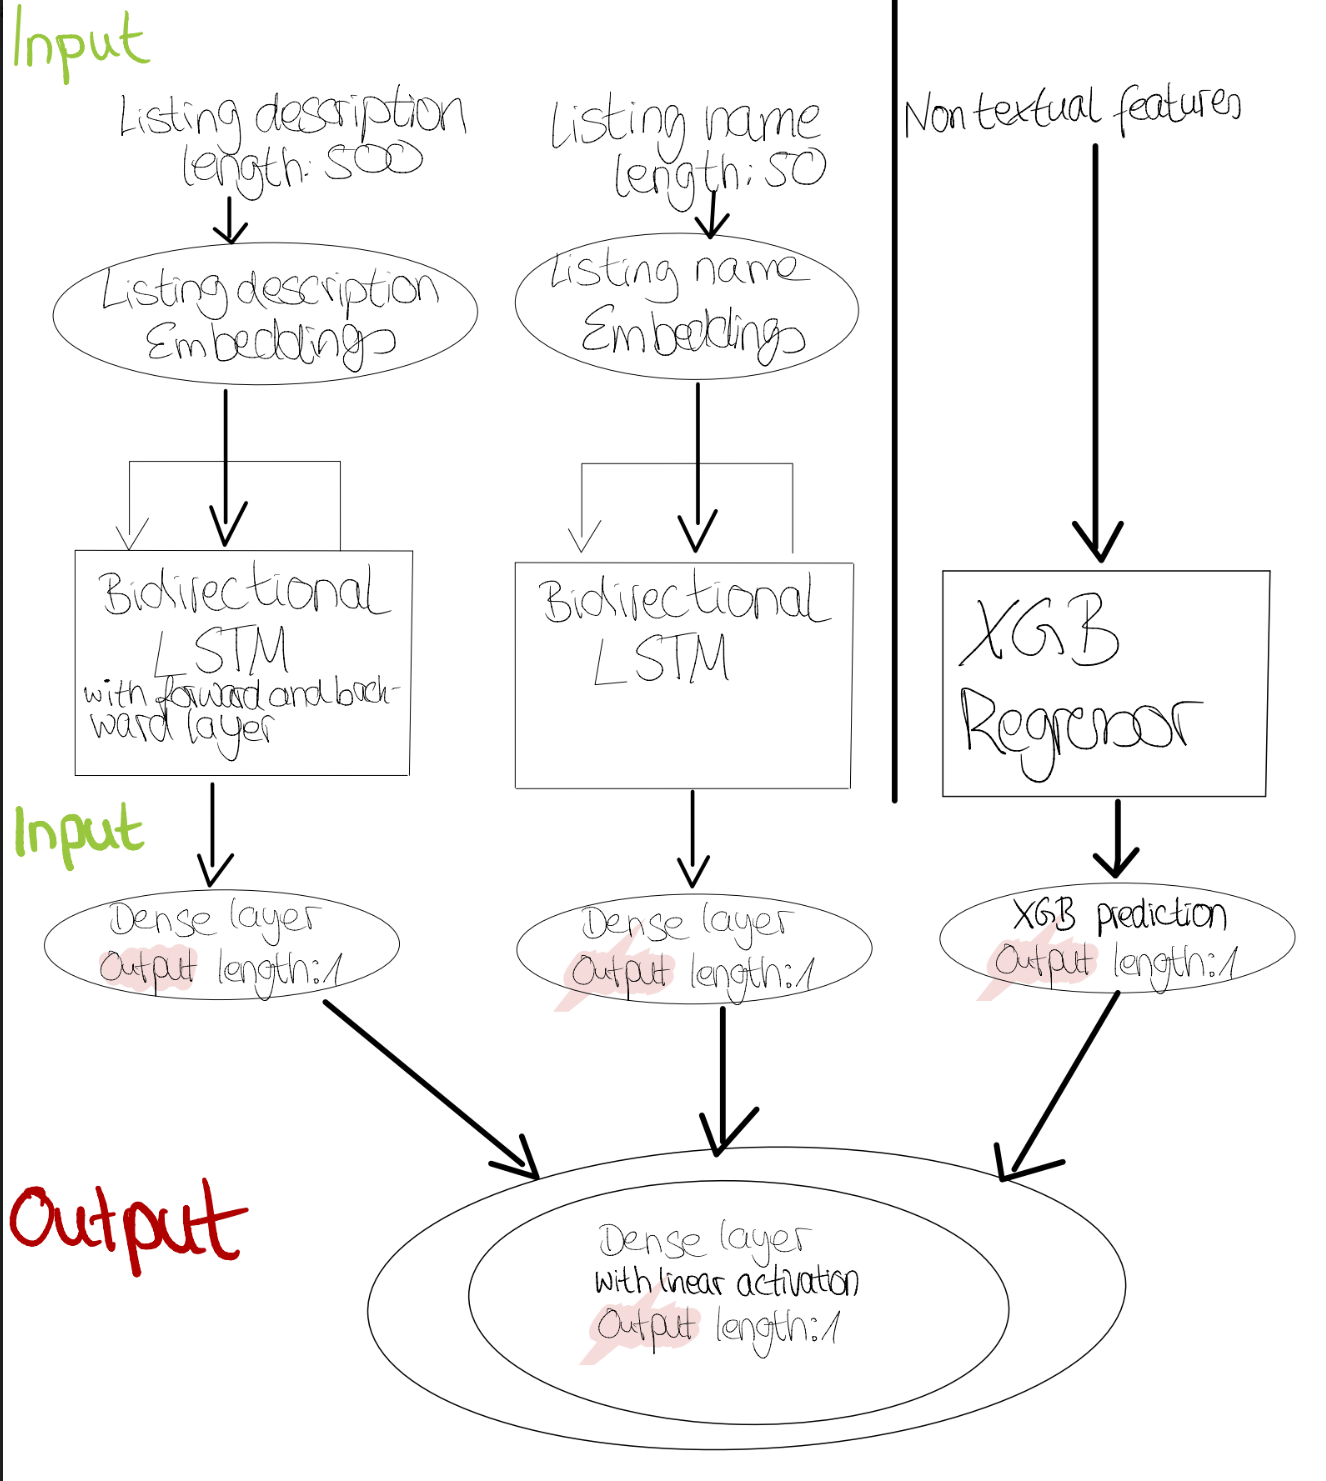 Input
Listing description
length: 500
Listing name
length: 50
Non textual features
Listing description
Embeddings
Listing name
Embeddings
Bidirectional
LSTM
with forward and back-
ward layer
Bidirectional
LSTM
XGB
Regressor
Input
Dense layer
Output length:1
Dense layer
Output length:1
XGB prediction
Output length:1
Output
Dense layer
with linear activation
Output length:1